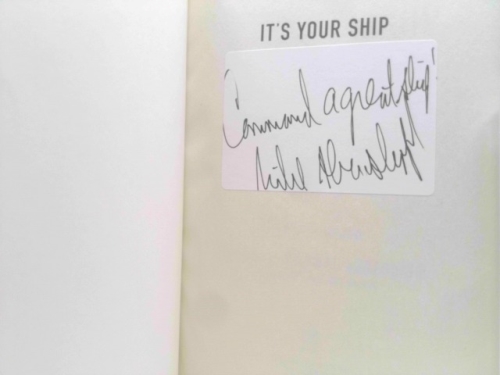 IT'S YOUR SHIP
Command a great ship!
Mike Abrashoff